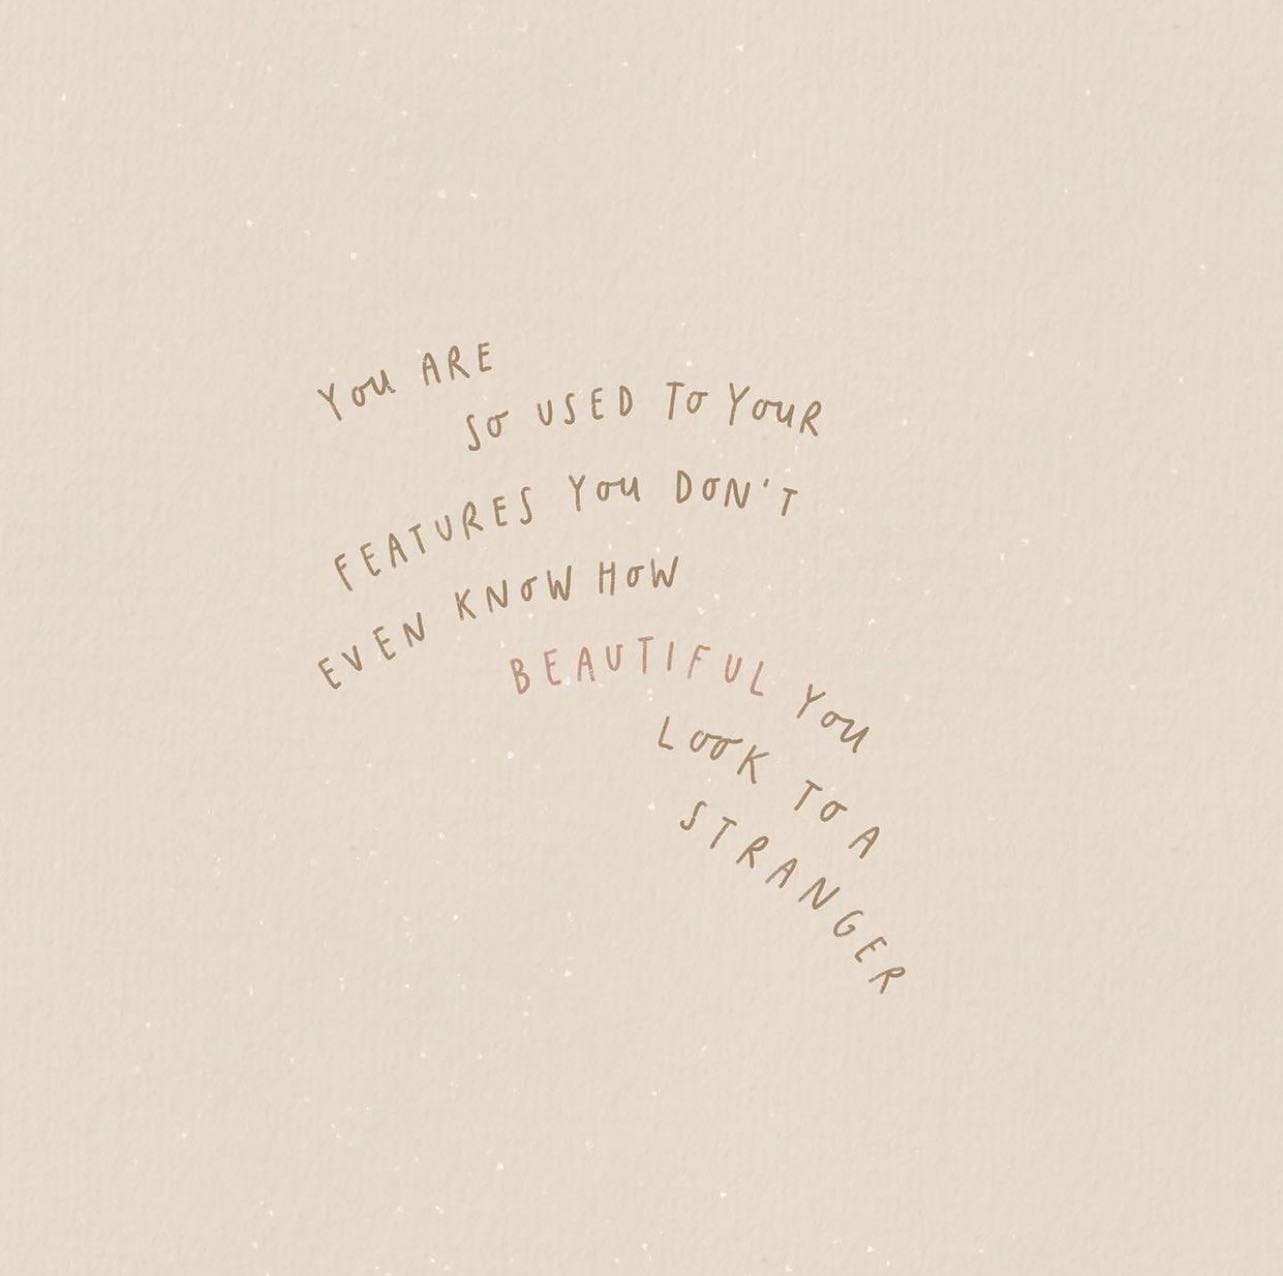 YOU ARE
SO USED TO YOUR
FEATURES YOU DON'T
EVEN KNOW HOW
BEAUTIFUL YOU
LOOK TO A
STRANGER